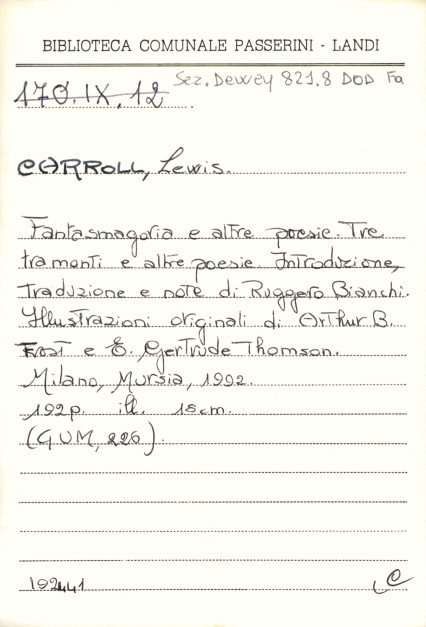 BIBLIOTECA COMUNALE PASSERINI - LANDI
170.IX.12 Sez. Dewey 821.8 DOD Fa
CARROLL, Lewis.
Fantasmagoria e altre poesie. Tre
tramonti e altre poesie. Introduzione,
traduzione e note di Ruggero Bianchi.
Illustrazioni originali di Arthur B.
Frost e E. Gertrude Thomson.
Milano, Mursia, 1992.
192p. ill. 18cm.
(GUM, 226).
192441